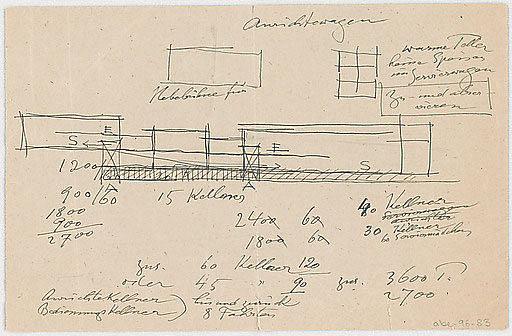 Anrichtewagen
warme Teller
keine Speisen
im Servierwagen
zu- und
vieren
Hebebühne für
S E
E S
1200
900/60 15 Kellner
1800
900
2700
2400 60
1800 60
40 Kellner
30 Kellner
zus. 60 Kellner 120
oder 45 " 90 zus. 3600 T.
2700
Anrichtekellner
Bedienungskellner
hin und zurück
8 Fahrten
abe-96-83